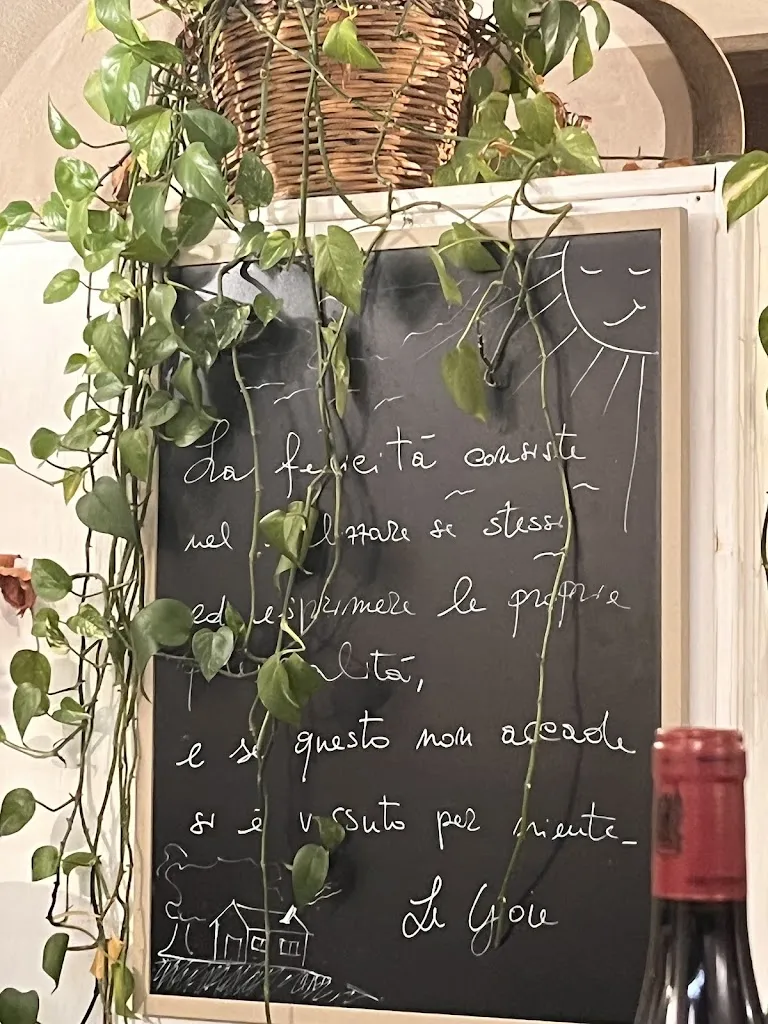 La felicità consiste
nel se stessi
ed esprimere le proprie
e se questo non accade
si è vissuto per niente_
Le Gioie